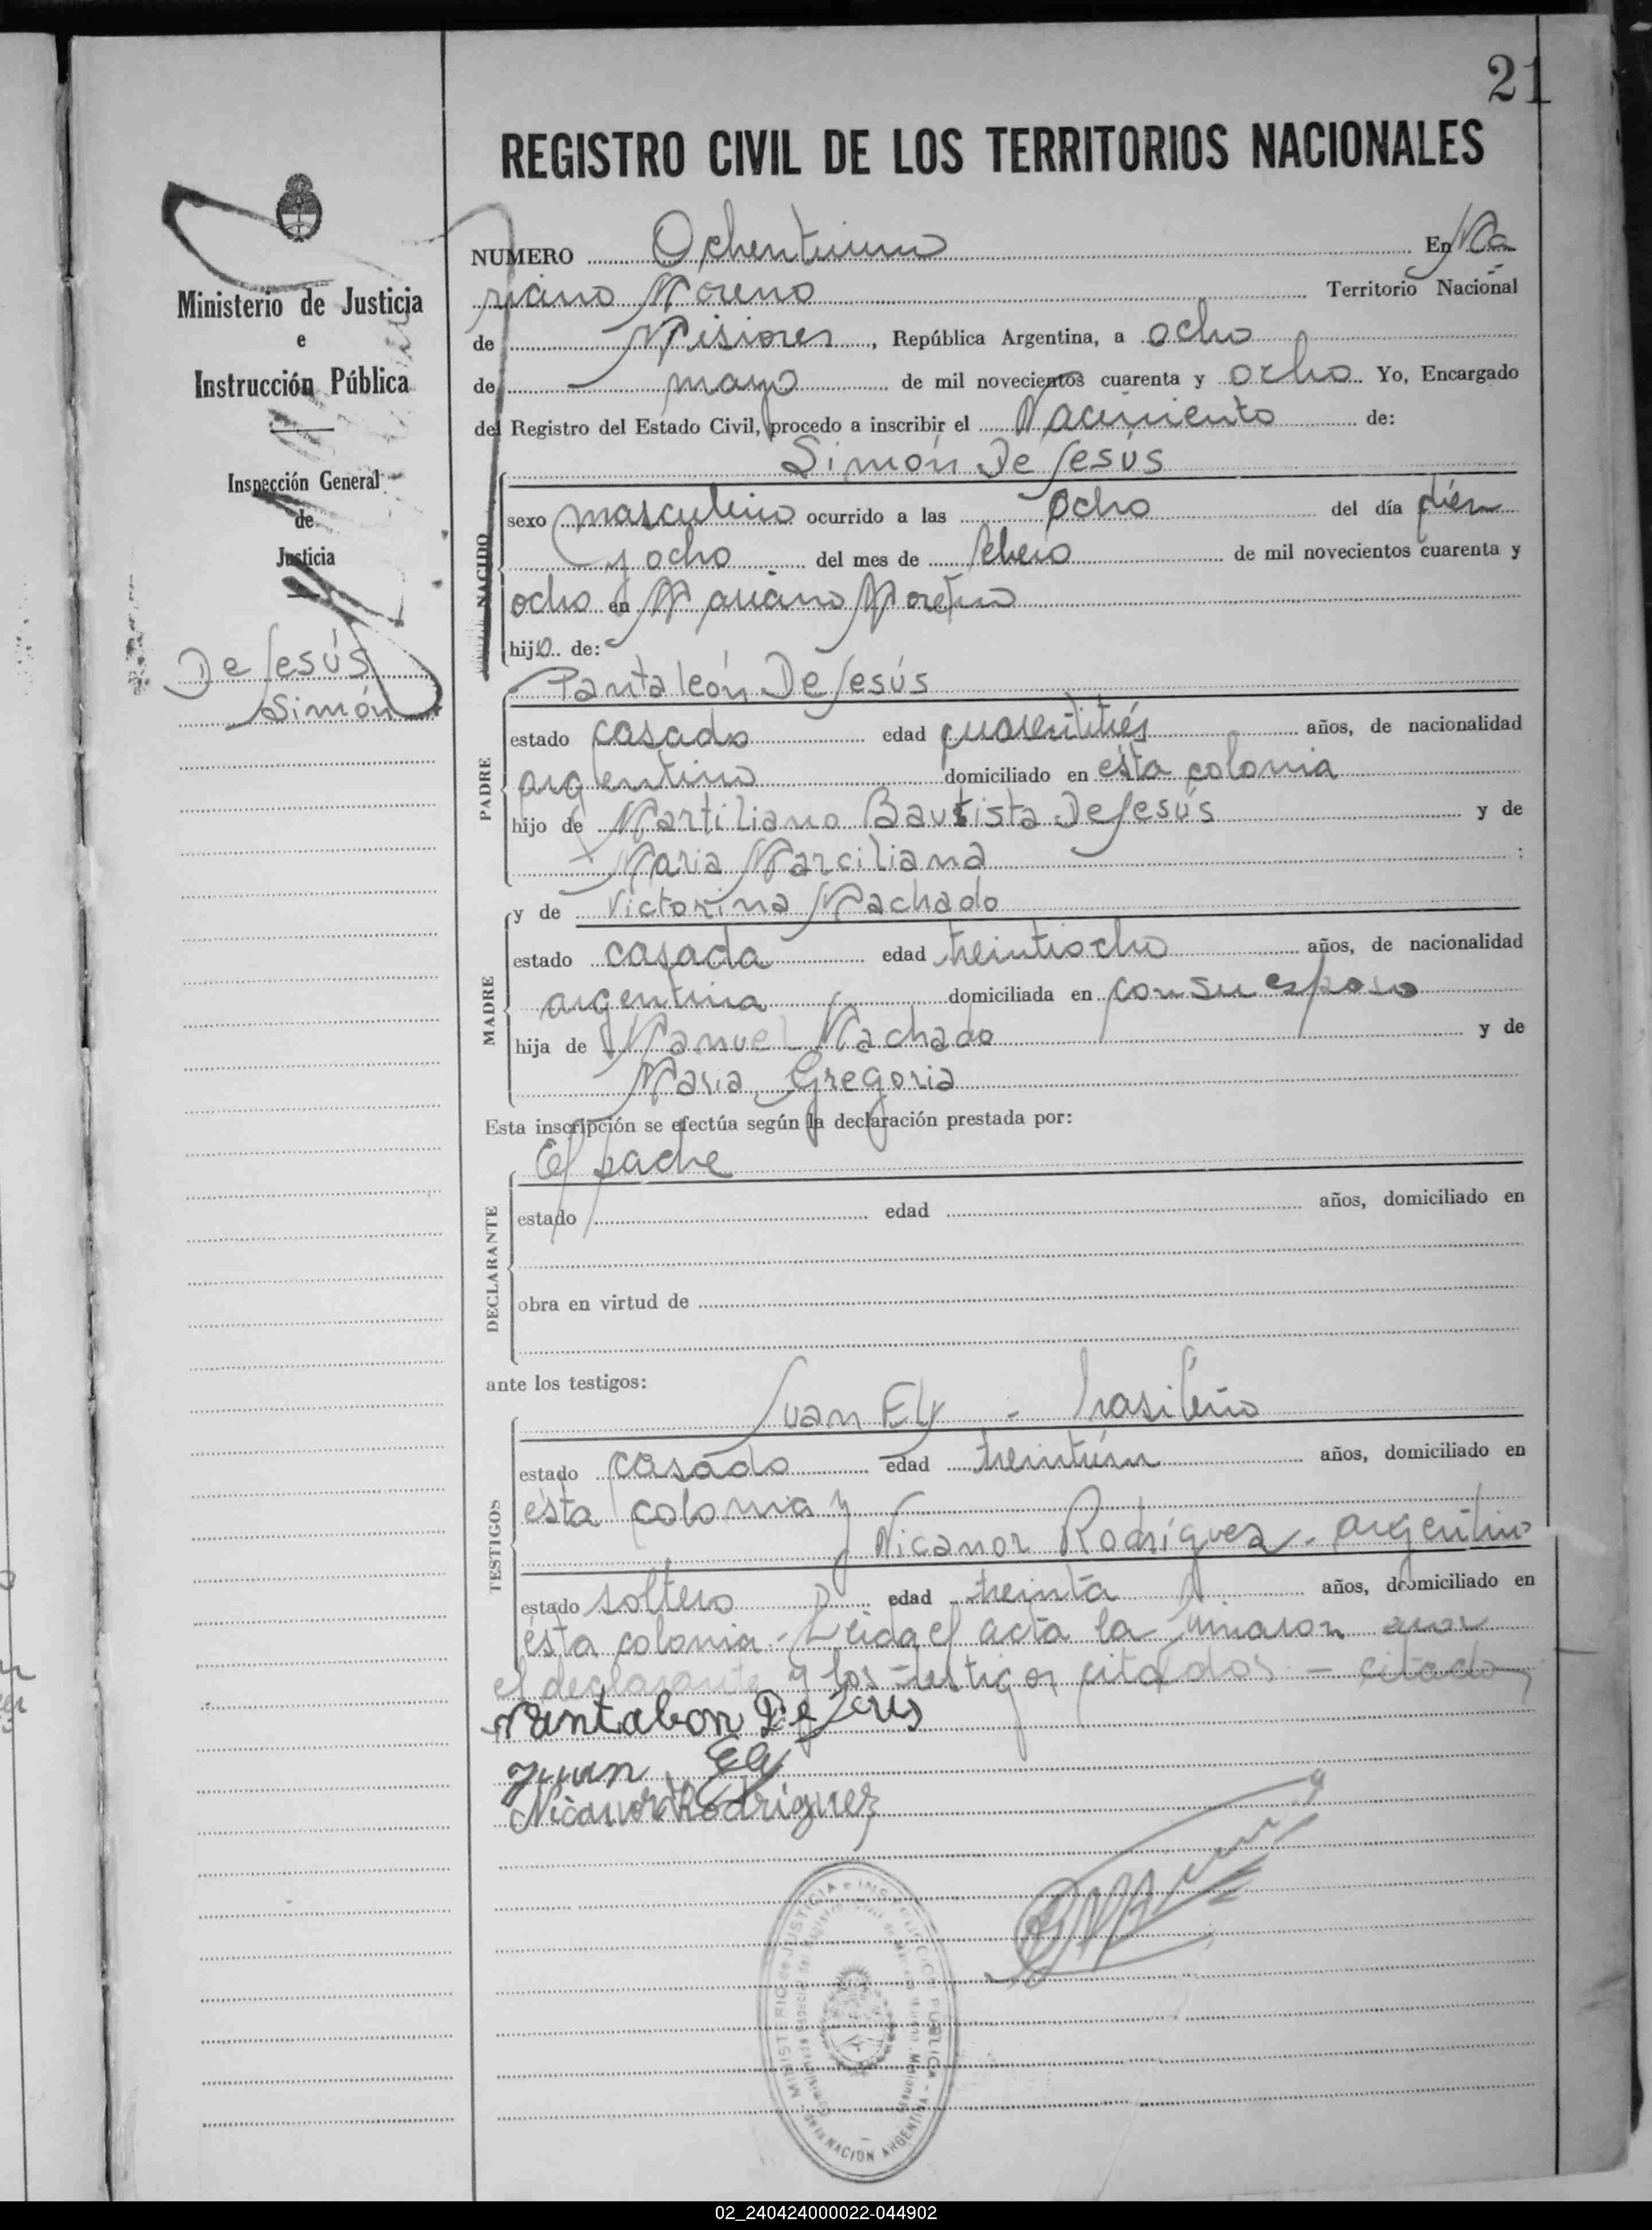 21
REGISTRO CIVIL DE LOS TERRITORIOS NACIONALES
Ministerio de Justicia
e
Instrucción Pública
Inspección General
de
Justicia
De Jesús
Simón
NUMERO Ochentiuno En Ma
riano Moreno Territorio Nacional
de Misiones, República Argentina, a ocho
de mayo de mil novecientos cuarenta y ocho. Yo, Encargado
del Registro del Estado Civil, procedo a inscribir el Nacimiento de:
Simón De Jesús
NACIDO
sexo masculino ocurrido a las ocho del día diez
y ocho del mes de febrero de mil novecientos cuarenta y
ocho en Mariano Moreno
hijo de:
Pantaleón De Jesús
PADRE
estado casado edad cuarentitrés años, de nacionalidad
argentino domiciliado en ésta colonia
hijo de Martiliano Bautista De Jesús y de
Maria Marciliana ;
y de Victorina Machado
MADRE
estado casada edad treintiocho años, de nacionalidad
argentina domiciliada en con su esposo
hija de Manuel Machado y de
Maria Gregoria
Esta inscripción se efectúa según la declaración prestada por:
El padre
DECLARANTE
estado edad años, domiciliado en
obra en virtud de
ante los testigos:
Juan Ely - brasileño
TESTIGOS
estado casado edad treintiún años, domiciliado en
ésta colonia y
Nicanor Rodríguez - argentino
estado soltero edad treinta años, domiciliado en
ésta colonia - Leida el acta la firmaron
el declarante y los testigos citados - citados
Pantaleon De Jesus
Juan Ely
Nicanor Rodriguez
MINISTERIO de JUSTICIA e INSTRUCCION PUBLICA
de la NACION ARGENTINA
02_240424000022-044902